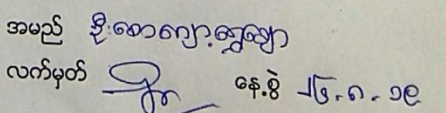 အမည် ဦးစောကျော့ရွှေကျော
လက်မှတ် နေ့စွဲ ၂၆.၈.၁၉